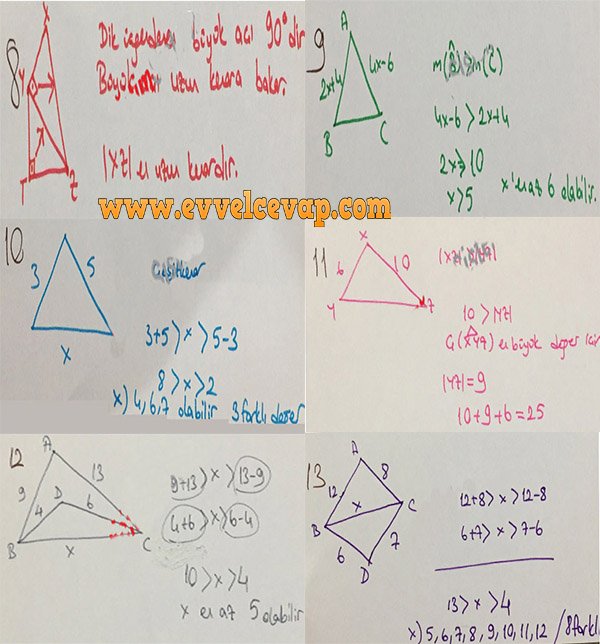 8
X
Y
T
Z
Dik üçgenlerde büyük açı 90° dir.
uzun kenara bakar.
|XZ| en uzun kenardır.
9
A
2x+4
4x-6
B
C
4x-6 > 2x+4
2x > 10
x > 5
x'en az 6 olabilir.
www.evvelcevap.com
10
3
5
x
Çeşitkenar
3+5 > x > 5-3
8 > x > 2
x) 4, 6, 7 olabilir 3 farklı değer
11
X
6
10
Y
Z
10 > |YZ|
Ç(XYZ) en büyük değer için
|YZ| = 9
10+9+6=25
12
A
9
13
D
4
6
B
x
C
9+13 > x > 13-9
4+6 > x > 6-4
10 > x > 4
x en az 5 olabilir
13
A
12
8
x
B
C
6
7
D
12+8 > x > 12-8
6+7 > x > 7-6
13 > x > 4
x) 5, 6, 7, 8, 9, 10, 11, 12 / 8 farklı